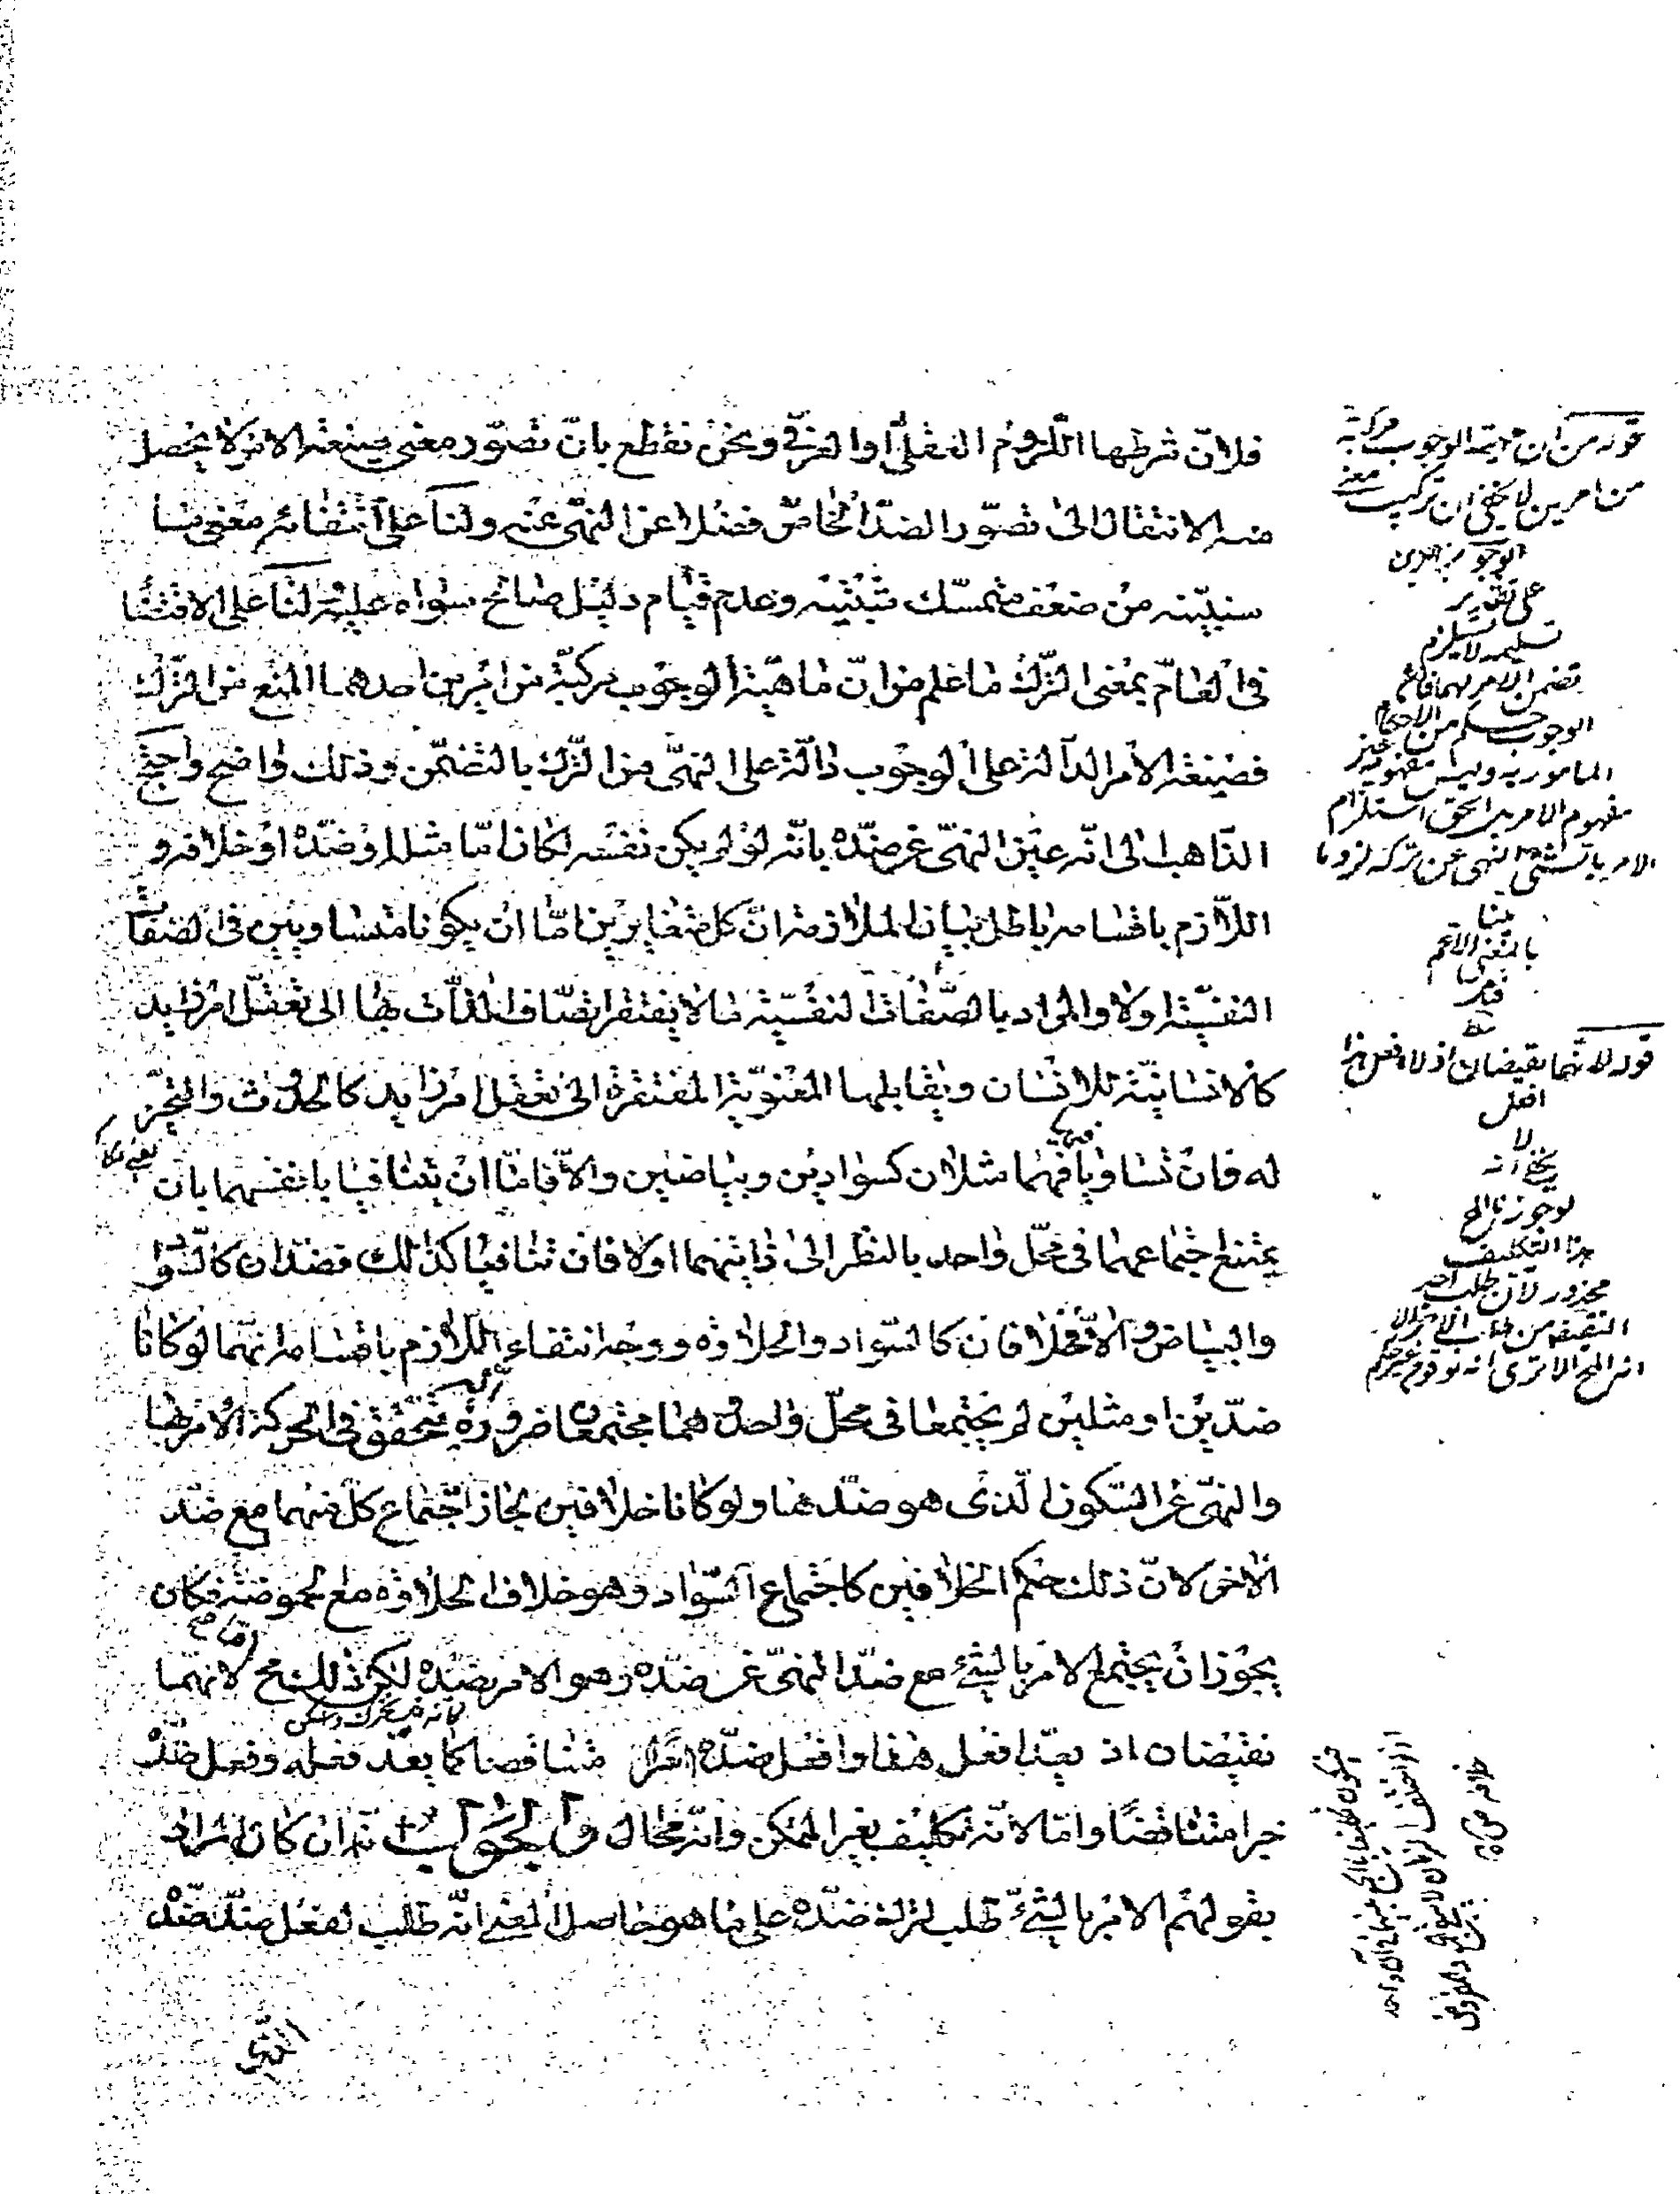 فلانّ شرطها اللّزوم العقلىّ او العرفى ونحن نقطع بانّ تصوّر معنى صيغة الامر لا يحصل
منه الانتقال الى تصوّر الضدّ الخاصّ فضلا عن النهى عنه ولنا على انتفائه معنى ما
سنبيّنه من ضعف متمسّك مثبتيه وعدم قيام دليل صالح سواه عليه لنا على الاقتضا
فى العامّ بمعنى الترك ما علم من انّ ماهيّة الوجوب مركبّة من امرين احدهما المنع من الترك
فصيغة الامر الدالّة على الوجوب دالّة على النهى من الترك بالتضمّن وذلك واضح واحتج
الذاهب الى انّه عين النهى عن ضدّه بانّه لو لم يكن نفسه لكان امّا مثله او ضدّه او خلافه و
اللازم باقسامه باطل بيان الملازمة انّ كل متغايرين امّا ان يكونا متساويين فى الصفات
النفسيّة او لا والمراد بالصّفات النفسيّة ما لا يفتقر اتصاف الذات بها الى تعقّل امر زايد
كالانسانيّة للانسان ويقابلها المعنويّة المفتقرة الى تعقل امر زايد كالحدوث والتحيّز
له فان تساويا فيها فهما مثلان كسوادين وبياضين والّا فامّا ان يتنافيا بانفسهما بان
يمتنع اجتماعهما فى محلّ واحد بالنظر الى ذاتيهما او لا فان تنافيا كذلك فضدّان كالسّواد
والبياض والّا فخلافان كالسّواد والحلاوة ووجه انتفاء اللازم باقسامه انّهما لو كانا
ضدّين او مثلين لم يجتمعا فى محلّ واحد وهما مجتمعان ضرورة انه يتحقق فى الحركة الامر بها
والنهى عن السّكون الّذى هو ضدّها ولو كانا خلافين لجاز اجتماع كل منهما مع ضدّ
الاخر لانّ ذلك حكم الخلافين كاجتماع السّواد وهو خلاف الحلاوة مع الحموضة فكان
يجوز ان يجتمع الامر بالشئ مع ضدّ النهى عن ضدّه وهو الامر بضدّه لكن ذلك مح امّا لانهما
نقيضان اذ يعدّ افعل هذا وافعل ضدّه امرا متناقضا كما يعدّ فعله وفعل ضدّه
خبرا متناقضا وامّا لانّه تكليف بغير الممكن وانّه محال والجواب انّه ان كان المراد
بقولهم الامر بالشئ طلب لترك ضدّه على ما هو حاصل المعنى انّه طلب لفعل ضدّ ضدّه
الّذى
قوله من ان ماهية الوجوب مركبة
من امرين لا يخفى ان تركيب معنى
الوجوب
على تقدير
تسليمه لا يستلزم
تضمن الامر لهما فان
الوجوب حكم من الاحكام
المأمور به وليس مفهومه عين
مفهوم الامر بل الحق استلزام
الامر بالشئ النهى عن تركه لزوما
بينا
بالمعنى الاعم
قوله لانهما نقيضان اذ
افعل
لا
يخفى انه
لو جوزنا
هذا التكليف